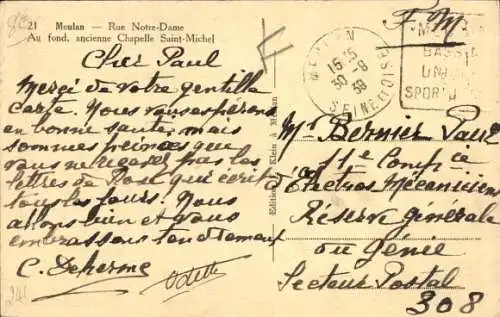 21 Meulan — Rue Notre-Dame
Au fond, ancienne Chapelle Saint-Michel
F M
F
MEULAN
16 35
30 - 8
39
SEINE ET OISE
BASSIN
UNI
SPOR
Cher Paul
Merci de votre gentille
carte. Nous vous espérons
en bonne santé, mais
sommes peinées que
vous ne receviez pas les
lettres de Rose qui écrit
tous les jours. Nous
allons bien et vous
embrassons tendrement
C. Deherme
Odette
Edition Klein à Meulan
Mr Bernier Paul
11e Compie
d'Électros Mécanicien
Réserve générale
du génie
Secteur Postal
308